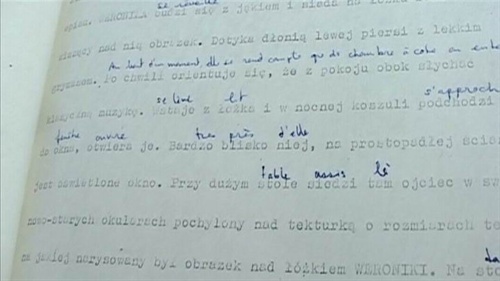 se réveille
WERONIKA budzi się z jękiem i siada na
wiszący nad nią obrazek. Dotyka dłonią lewej piersi z lekkim
Au bout d'un moment, elle se rend compte que de chambre à côté on
Po chwili orientuje się, że z pokoju obok słychać
se lève et s'approch
klasyczną muzykę. Wstaje z łóżka i w nocnej koszuli podchodzi
fenêtre ouvre très près d'elle
do okna, otwiera je. Bardzo blisko niej, na prostopadłej ścia
table assis
jest oświetlone okno. Przy dużym stole siedzi tam ojciec w sw
nowo-starych okularach pochylony nad tekturką o rozmiarach te
na jakiej narysowany był obrazek nad łóżkiem WERONIKI. Na sto